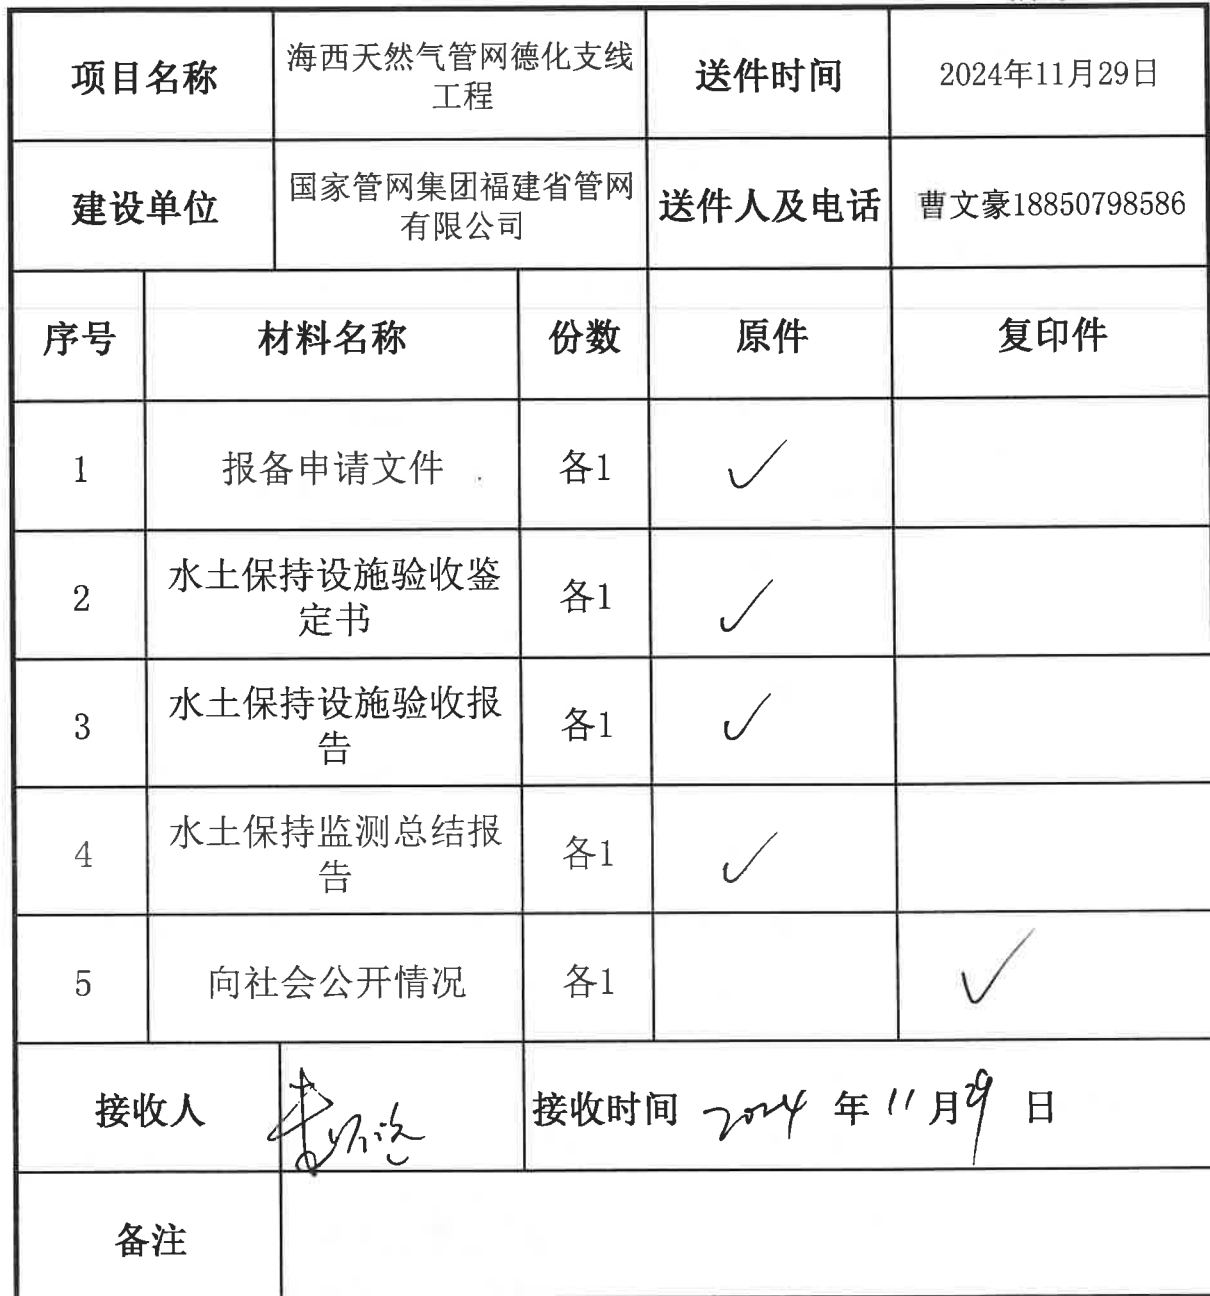 项目名称 海西天然气管网德化支线 送件时间 2024年11月29日
工程
建设单位 国家管网集团福建省管网 送件人及电话 曹文豪18850798586
有限公司
序号 材料名称 份数 原件 复印件
1 报备申请文件 各1 ✓
2 水土保持设施验收鉴 各1 ✓
定书
3 水土保持设施验收报 各1 ✓
告
4 水土保持监测总结报 各1 ✓
告
5 向社会公开情况 各1 ✓
接收人 接收时间 2024 年 11 月 29 日
备注